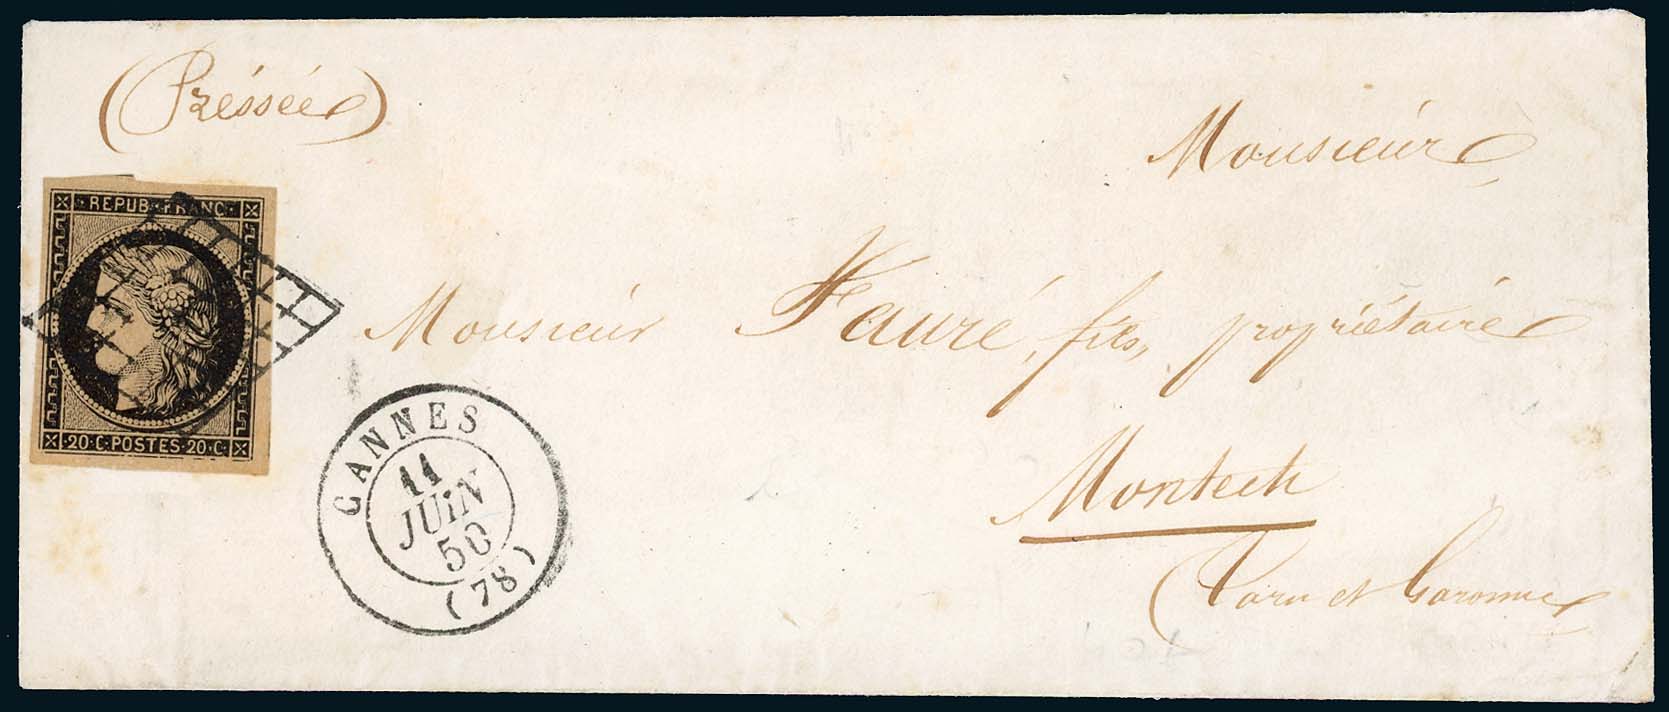 (Préssée)
Monsieur
REPUB. FRANC.
20·C·POSTES·20·C·
Monsieur Fauré, fils, propriétaire
CANNES
11
JUIN
50
(78)
Montech
(Tarn et Garonne